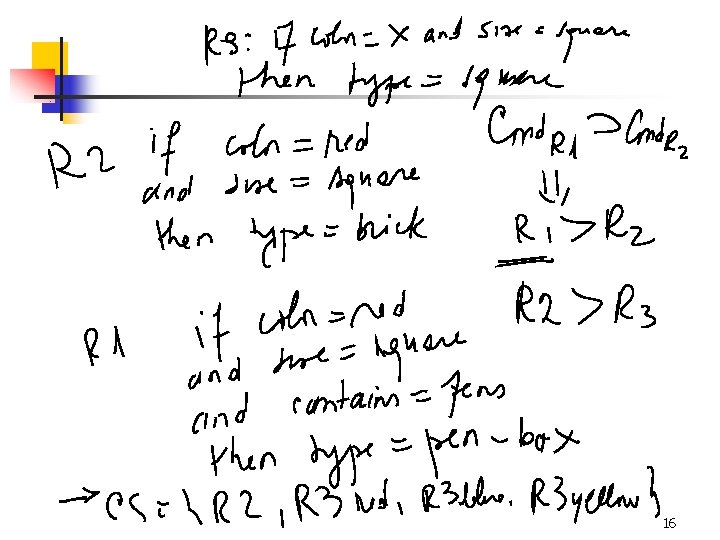 R3: if color = X and size = square
then type = square
R2 if color = red
and size = square
then type = brick
Cond R1 ⊃ Cond R2
⇓
R1 > R2
R2 > R3
R1 if color = red
and size = square
and contain = pens
then type = pen-box
→ CS = { R2, R3 red, R3 blue, R3 yellow }
16